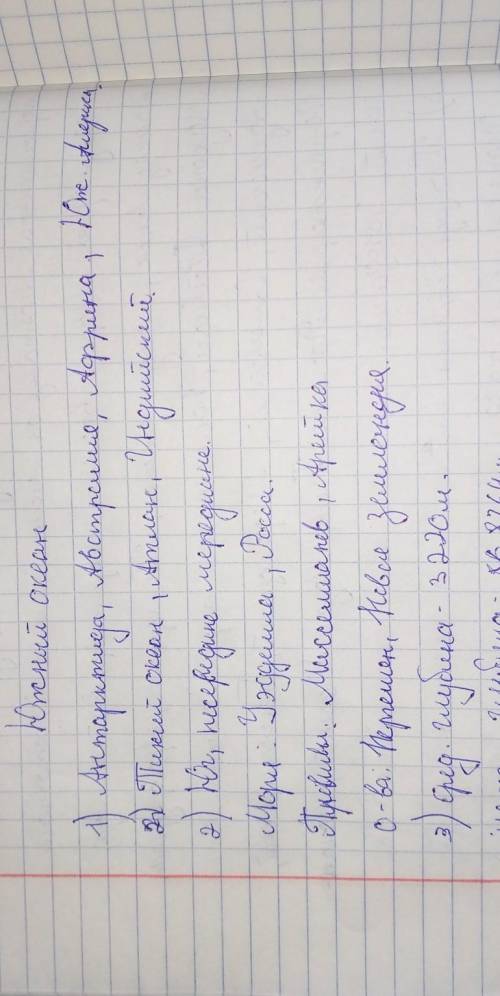 Южный океан
1) Антарктида, Австралия, Африка, Юж. Америка.
2) Тихий океан, Атлан, Индийский.
2) Юг, посередине меридиане.
Моря: Уэдделла, Росса.
Проливы:
о-ва: Кергелен, Новая Земландия.
3) сред. глубина - 3220м.